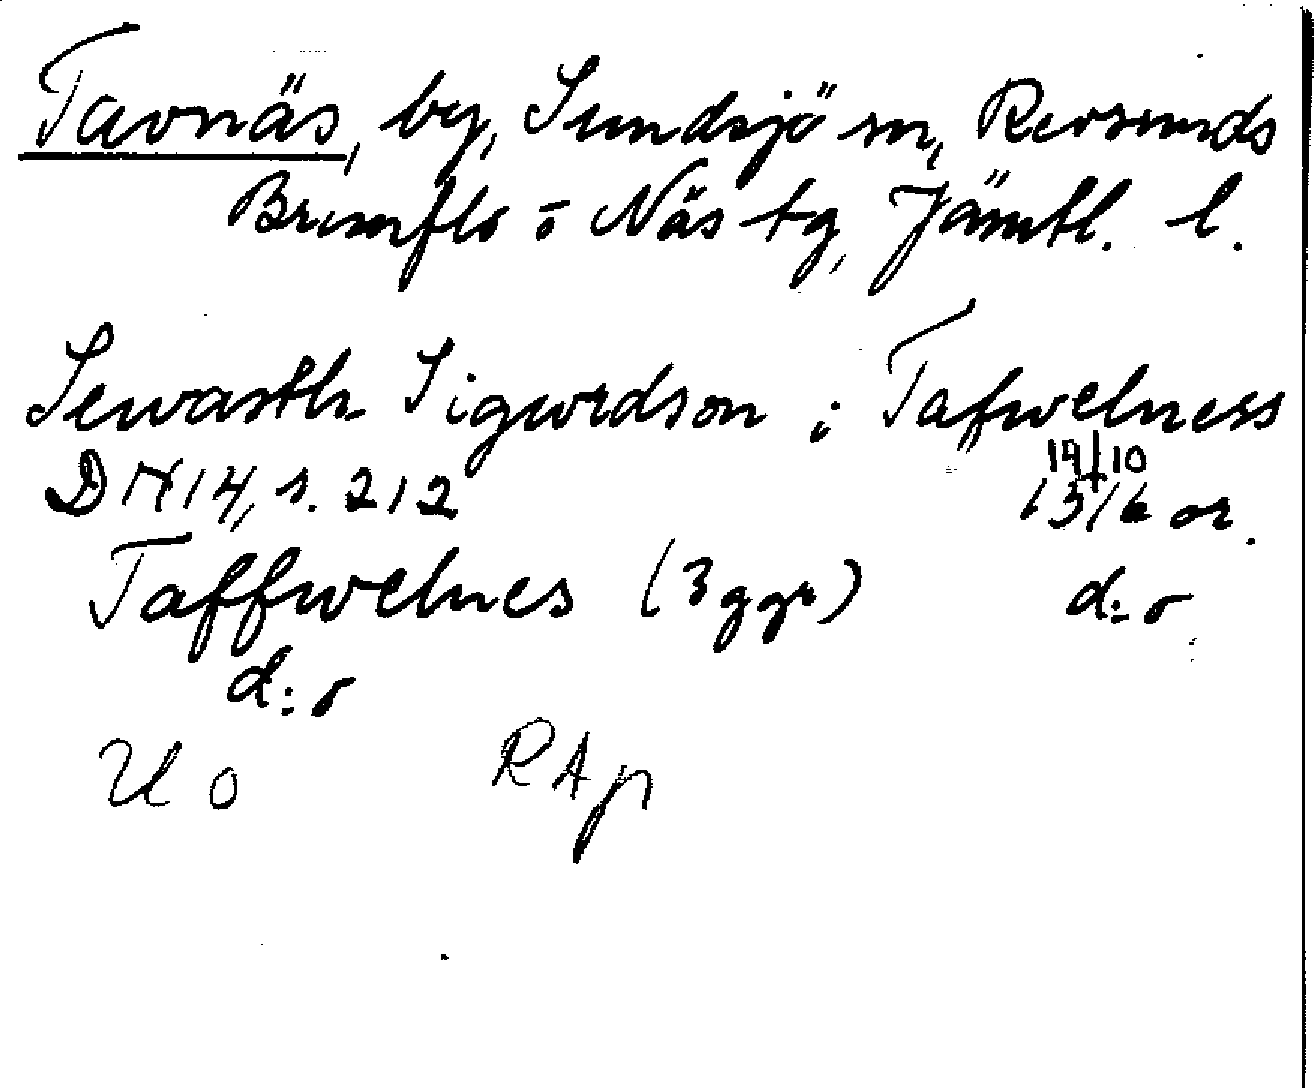 Tavnäs, by, Sundsjö sn, Revsunds
Brunflo o Näs tg, Jämtl. l.
Sewasth Sigwrdson i Tafwelness
DN 14, s. 212 14/10 1516 or.
Taffwelnes (3 ggr) d:o
d:o
U o RAp